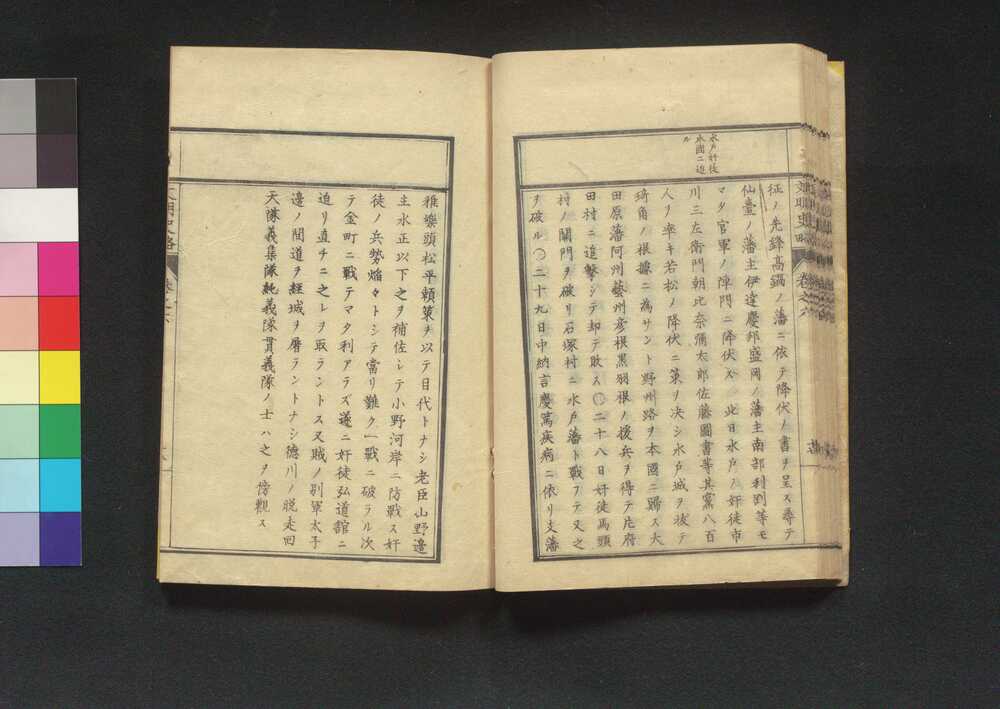 水戸奸徒
本國ニ迫
ル
征ノ先鋒高鍋ノ藩ニ依テ降伏ノ書ヲ呈ス尋テ
仙臺ノ藩主伊達慶邦盛岡ノ藩主南部利剛等モ
マタ官軍ノ陣門ニ降伏ス 此日水戸ノ奸徒市
川三左衛門朝比奈彌太郎佐藤圖書等其黨八百
人ヲ率キ若松ノ降伏ニ策ヲ決シ水戸城ヲ拔テ
犄角ノ根據ニ為サント野州路ヲ本國ニ歸ス大
田原藩阿州藝州彦根黒羽根ノ援兵ヲ得テ片府
田村ニ追撃シテ却テ敗ス〇二十八日奸徒馬頭
村ノ關門ヲ破リ石塚村ニ水戸藩ト戰フテ又之
ヲ破ル〇二十九日中納言慶篤疾病ニ依リ支藩
文明史略
卷之六
雅樂頭松平頼策ヲ以テ目代トナシ老臣山野邉
主水正以下之ヲ補佐シテ小野河岸ニ防戰ス奸
徒ノ兵勢焔々トシテ當リ難ク一戰ニ破ラル次
テ金町ニ戰テマタ利アラズ遂ニ奸徒弘道舘ニ
迫リ直チニ之レヲ取ラントス又賊ノ別軍太子
邉ノ間道ヲ経城ヲ屠ラントナシ德川ノ脱走回
天隊義集隊純義隊貫義隊ノ士ハ之ヲ傍觀ス